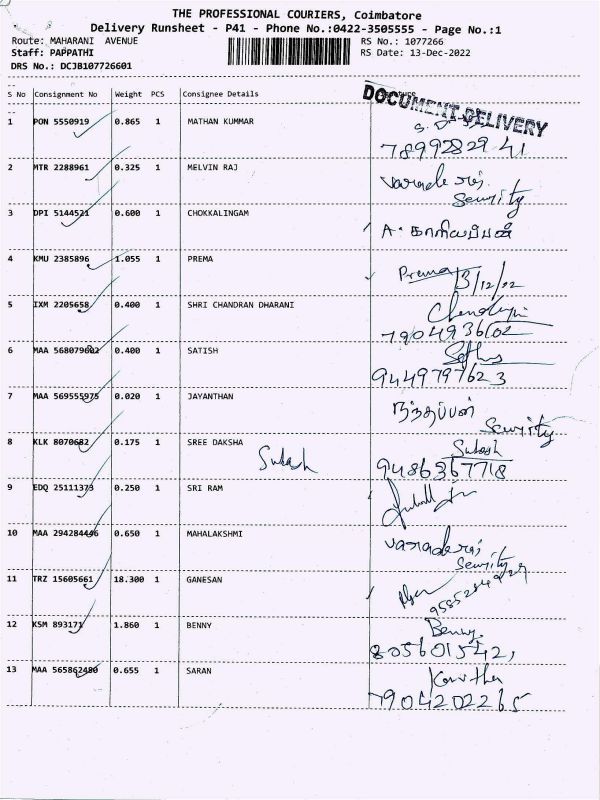 THE PROFESSIONAL COURIERS, Coimbatore
Delivery Runsheet - P41 - Phone No.:0422-3505555 - Page No.:1
Route: MAHARANI AVENUE RS No.: 1077266
Staff: PAPPATHI RS Date: 13-Dec-2022
DRS No.: DCJB107726601
S No Consignment No Weight PCS Consignee Details
DOCUMENT DELIVERY
1 PON 5550919 0.865 1 MATHAN KUMMAR
7899282941
2 MTR 2288961 0.325 1 MELVIN RAJ
Security
3 DPI 5144521 0.600 1 CHOKKALINGAM
4 KMU 2385896 1.055 1 PREMA Prema 13/12/22
5 IXM 2205658 0.400 1 SHRI CHANDRAN DHARANI
7904936602
6 MAA 568079602 0.400 1 SATISH
9449797623
7 MAA 569555975 0.020 1 JAYANTHAN
Security
8 KLK 8070682 0.175 1 SREE DAKSHA
9486367718
9 EDQ 25111373 0.250 1 SRI RAM
10 MAA 294284446 0.650 1 MAHALAKSHMI
Security
11 TRZ 15605661 18.300 1 GANESAN
12 KSM 893171 1.860 1 BENNY Benny
8056015421
13 MAA 565862480 0.655 1 SARAN Kavitha
7904202265